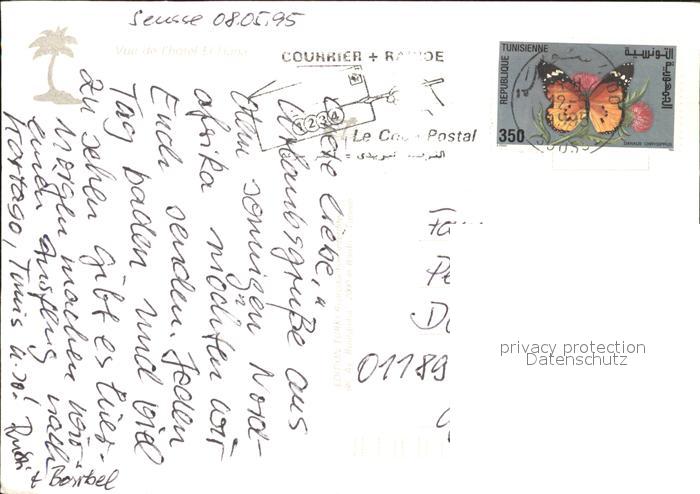 Sousse 08.05.95
Vue de l'hotel El Hana
COURRIER + RAPIDE
1234
Le Code Postal
الترقيم البريدي =
REPUBLIQUE TUNISIENNE
الجمهورية التونسية
350
DANAUS CHRYSIPPUS
liebe,
Urlaubsgrüße aus
dem sonnigen Nord-
afrika möchten wir
Euch senden. Jeden
Tag baden und viel
zu sehen gibt es hier.
Morgen machen wir
einen Ausflug nach
Kartago, Tunis u.s.!
Rudi + Bärbel
Fa
Pe
D
01189
privacy protection
Datenschutz